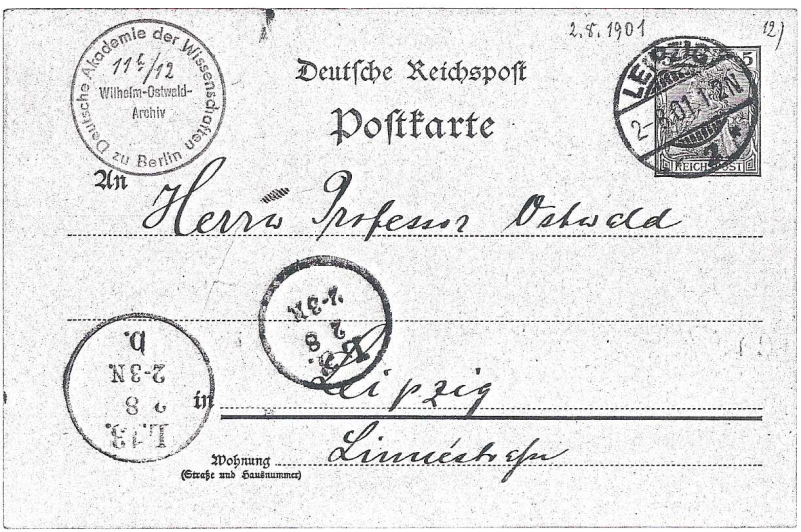 2.8.1901
12)
Deutsche Akademie der Wissenschaften zu Berlin
11 /12
Wilhelm-Ostwald-
Archiv
Deutsche Reichspost
Postkarte
LEIPZIG
2-8.01.1-2N
2 *
5
REICHSPOST
An
Herrn Professor Ostwald
2-3N
2 8
L.13.
2 8
2-3N
b.
in Leipzig
Wohnung Linnéstraße
(Straße und Hausnummer)